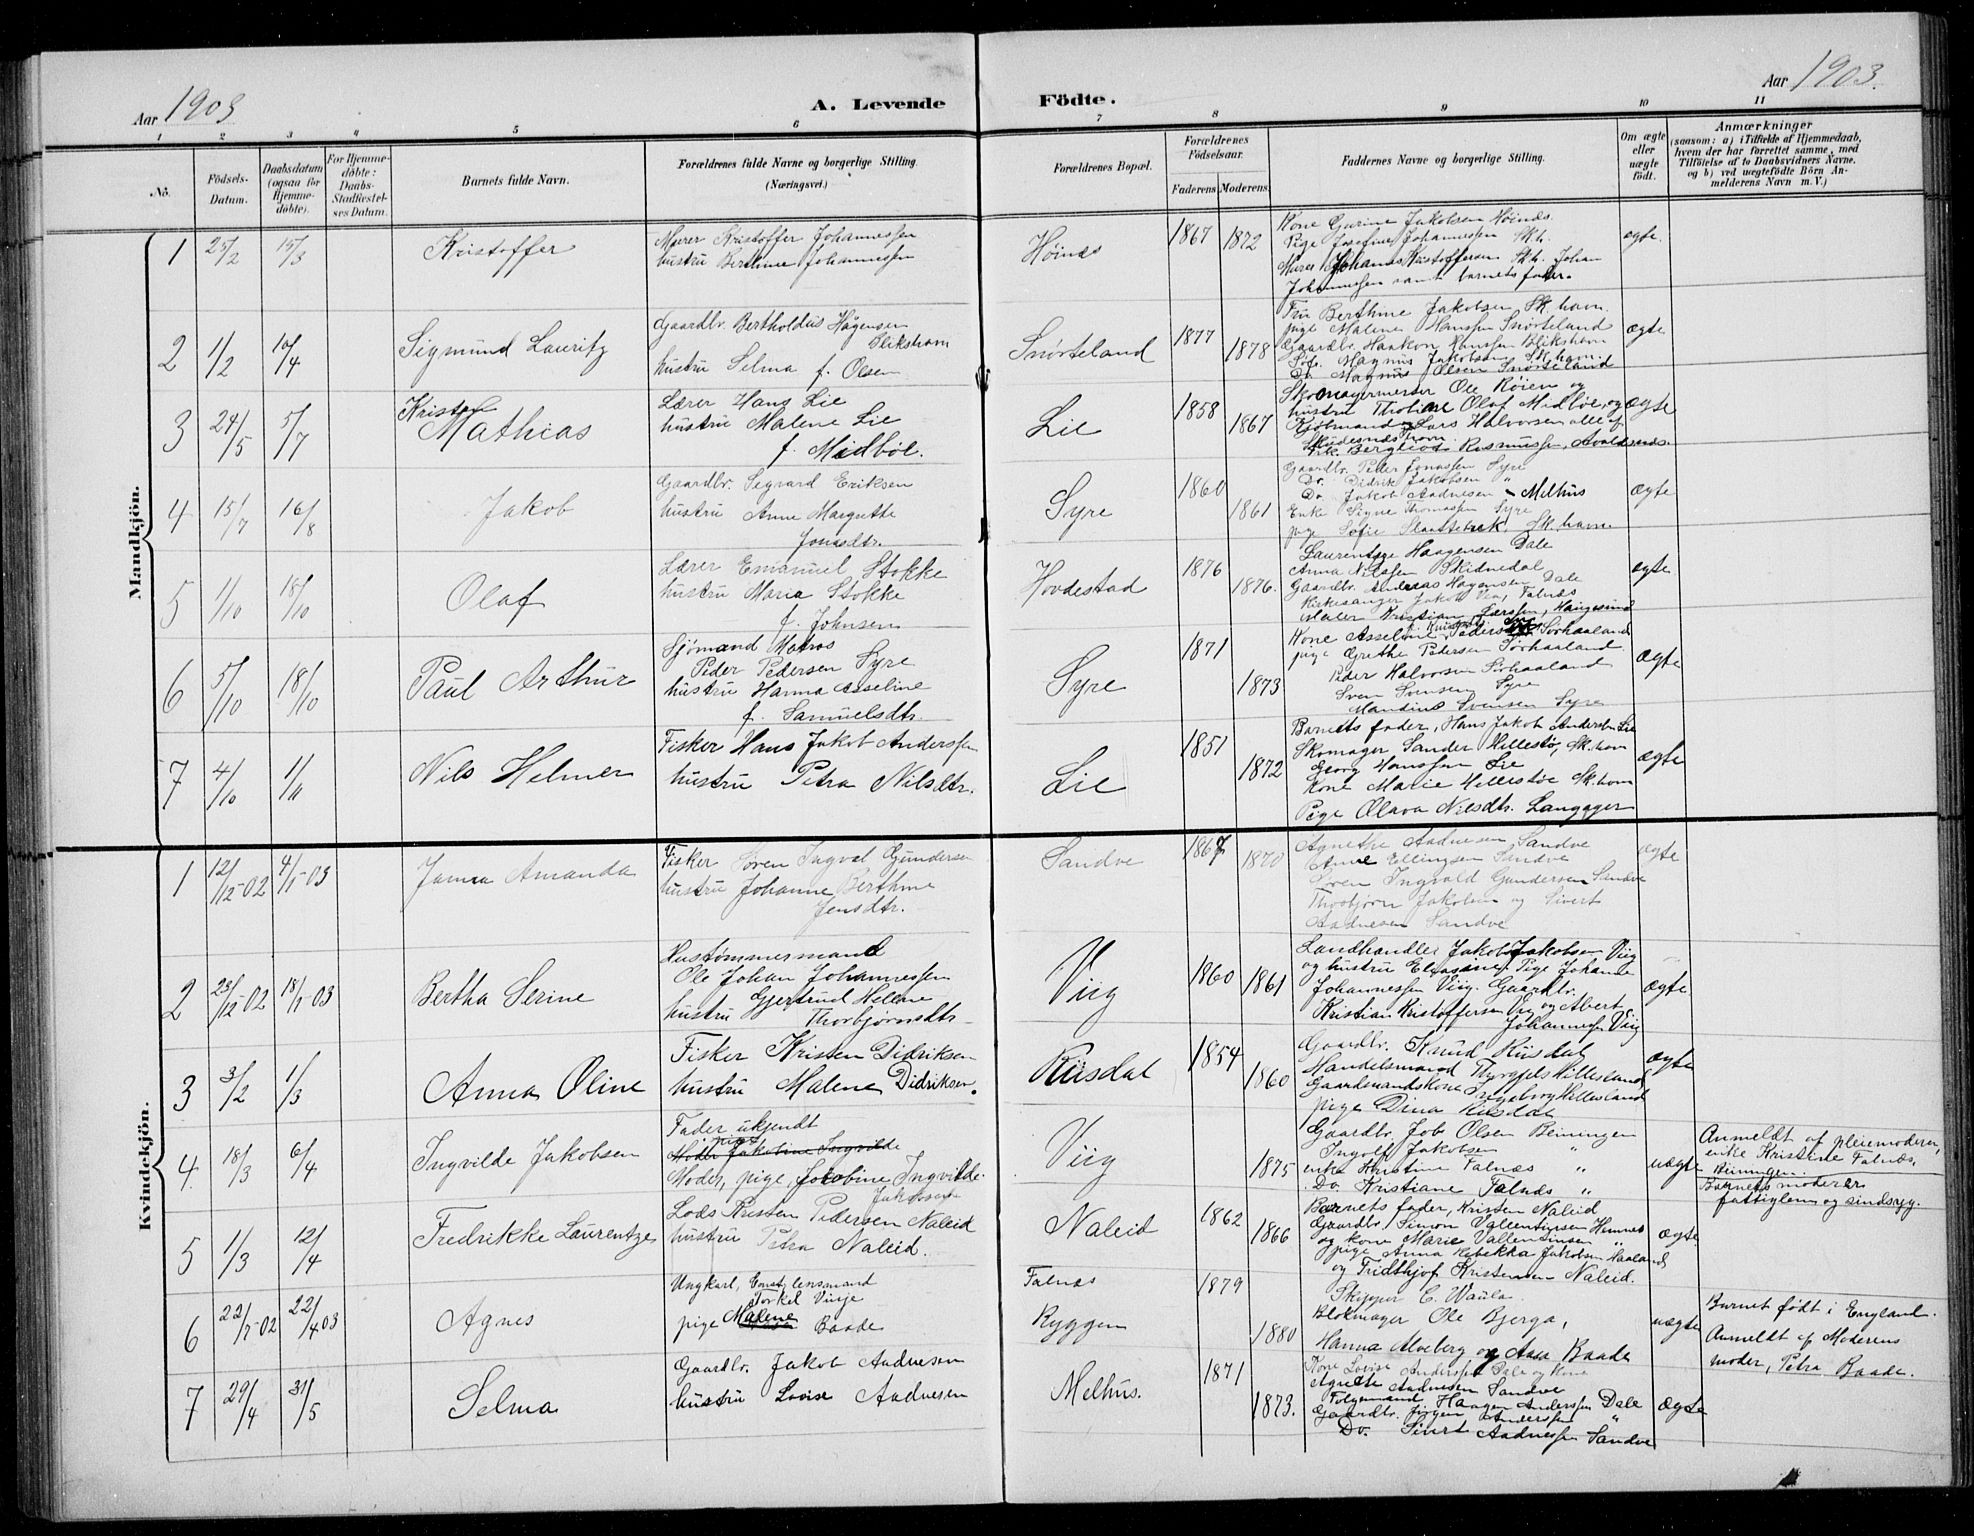 Aar 1903
A. Levende
Födte.
Aar 1903.
1 2 3 4 5 6 7 8 9 10 11
No.
Födsels-Datum.
Daabsdatum (ogsaa for Hjemme-döbte).
For Hjemme-döbte: Daabs-Stadfæstel-ses Datum.
Barnets fulde Navn.
Forældrenes fulde Navne og borgerlige Stilling. (Næringsvei.)
Forældrenes Bopæl.
Forældrenes Födselsaar.
Faderens. Moderens.
Faddernes Navne og borgerlige Stilling.
Om ægte eller uægte födt.
Anmærkninger
(saasom: a) i Tilfælde af Hjemmedaab, hvem der har forrettet samme, med Tilföielse af to Daabsvidners Navne. og b) ved uægtefödte Börn Anmelderens Navn m. V.)
Mandkjön.
1 25/2 15/3 Kristoffer
Murer Kristoffer Johannessen
hustru Berthine Johannessen
Höinæs 1867 1872
Kone Gurine Jakobsen Höinæs.
Pige Josefine Johannessen Sk.h.
Murer Johannes Kristoffersen Sk.h. Johan
Johannessen samt barnets fader.
ægte.
2 1/2 10/4 Sigmund Lauritz
Gaardbr. Bertholdus Hågensen
Blikshavn
hustru Selma f. Olsen
Snørteland 1877 1878
Fru Berthine Jakobsen, Sk.havn.
pige Malene Hansen Snørteland
Gaardbr. Haakon Hansen Blikshavn
Magnus Jakobsen Sk.havn.
Do Magnus Olsen Snørteland
ægte
3 24/5 5/7 Kristen
Mathias
Lærer Hans Lie
hustru Malene Lie
f. Midböe.
Lie 1858 1867
Skomagermester Ole Röien og
hustru Tholine Olaf Midböe, og
Kjöbmand Lars Halvorsen alle af
Skudesneshavn.
Frk. Bergliot Rasmussen, Avaldsnæs.
ægte
4 15/7 16/8 Jakob
Gaardbr. Segvard Eriksen
hustru Anne Margrethe
Jonasdtr.
Syre 1860 1861
Gaardbr. Peder Jonassen Syre
Do. Didrik Jakobsen "
Do Jakob Aadnesen Melhus
Enke Signe Thomassen Syre
pige Sofie Slaattebrek Sk.havn
ægte
5 1/10 18/10 Olaf
Lærer Emanuel Stokke
hustru Maria Stokke
f. Johnsen
Hovdestad 1876 1876.
Laurentze Haagensen Dale
Anna Nilssen Skidnedal
Gaardbr. Andreas Hagensen Dale
Kirkesanger Jakob Vea, Falnæs
Maler Kristian Larssen, Haugesund
ægte
6 5/10 18/10 Paul Arthur
Sjömand Matros
Peder Pedersen Syre
hustru Hanna Asseline
f. Samuelsdtr.
Syre 1871 1873
Kone Asseline Peders Sörhaaland
pige Grethe Petersen Sörhaaland
Peder Halvorsen Sörhaaland
Sven Svensen Syre
Mandius Svensen Syre
ægte
7 4/10 1/11 Nils Helmer
Fisker Hans Jakob Anderssen
hustru Petra Nilsdtr.
Lie 1851 1872
Barnets fader, Hans Jakob Andersen Lie
Skomager Sander Hillestö, Sk.havn
Georg Hanssen Lie
Kone Marie Hillestöe Sk.havn
Pige Olava Nilsdtr. Langager
ægte
Kvindekjön.
1 12/12-02 4/1-03 Janna Amanda
Fisker Sören Ingval Gundersen
hustru Johanne Berthine
Jensdtr.
Sandve 1867 1870
Agnethe Aadnesen Sandve
Anne Ellingsen Sandve
Sören Ingvald Gundersen Sandve
Thorbjörn Jakobsen og Sivert
Aadnesen Sandve
ægte
2 23/12-02 18/1-03 Bertha Serine
Hustømmermand
Ole Johan Johannessen
hustru Gjertrud Helene
Thorbjørnsdtr.
Viig 1860 1861
Landhandler Jakob Jakobsen Viig
og hustru Elvasine, Pige Johanne
Johannessen Viig. Gaardbr.
Kristian Kristoffersen Vig og Albert
Johannessen Viig
ægte
3 3/2 1/3 Anna Oline
Fisker Kristen Didriksen
hustru Malene Didriksen.
Riisdal 1854 1860
Gaardbr. Knud Riisdal
Handelsmand Thorgils Hillesland
Gaardmandskone Ingeborg Hillesland
pige Dina Riisdal
ægte
4 18/3 6/4 Ingvilde Jakobsen
Fader ukjendt
pige
Moder Jakobine Ingvilde
Moder, pige, Jakobine Ingvilde
Jakobsen
Viig 1875
Gaardbr. Job Olsen Beiningen
Ingolf Jakobsen "
enke Kristine Falnæs "
Do. Kristiane Falnæs "
uægte
Anmeldt af pleiemoderen,
enke Kristine Falnæs,
Beiningen.
Barnets moder er
fattiglem og sindssyg.
5 1/3 12/4 Fredrikke Laurentze
Lods Kristen Pedersen Naleid
hustru Petra Naleid.
Naleid 1862 1866
Barnets fader, Kristen Naleid
Gaardbr. Simon Vallentinsen Hemnes
og kone Marie Vallentinsen "
pige Anna Rebekka Jakobsen Haaland
og Fridthjof Kristensen Naleid.
ægte
6 22/7-02 22/4 03 Agnes
Ungkarl, Const. lensmand
Torkel Vinje
pige Malene Baade
Falnæs
Ryggen 1879 1880
Skipper C. Waula.
Blokmager Ole Bjerga,
Hanna Alveberg og Asa Baade
uægte
Barnet født i England.
Anmeldt af Moderens
moder, Petra Baade.
7 29/4 31/5 Selma
Gaardbr. Jakob Aadnesen
hustru Lovise Aadnesen
Melhus. 1871 1873.
Kone Lovise Anderssen Dale og Kone
Agnete Aadnesen Sandve
Folgemand Haagen Anderssen Dale
Gaardbr. Jörgen Anderssen "
Do. Sivert Aadnessen Sandve
ægte